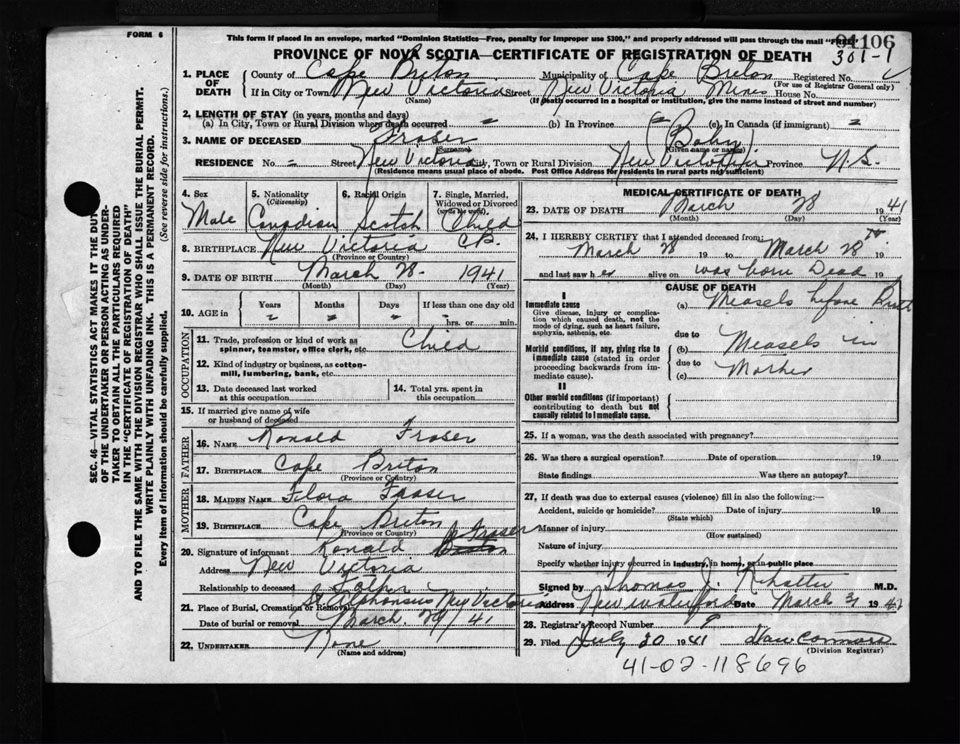 FORM 6
This form if placed in an envelope, marked "Dominion Statistics—Free, penalty for improper use $300," and properly addressed will pass through the mail "Free"
01106
PROVINCE OF NOVA SCOTIA—CERTIFICATE OF REGISTRATION OF DEATH
301-1
1. PLACE OF DEATH
County of Cape Breton Municipality of Cape Breton Registered No.
(For use of Registrar General only)
If in City or Town New Victoria Street New Victoria Mines House No.
(Name) (If death occurred in a hospital or institution, give the name instead of street and number)
2. LENGTH OF STAY (in years, months and days)
(a) In City, Town or Rural Division where death occurred = (b) In Province = (c) In Canada (if immigrant) =
3. NAME OF DECEASED Fraser (Baby)
(Surname) (Given name or names)
RESIDENCE No. = Street New Victoria City, Town or Rural Division New Victoria Province N.S.
(Residence means usual place of abode. Post Office Address for residents in rural parts not sufficient)
4. Sex Male
5. Nationality (Citizenship) Canadian
6. Racial Origin Scotch
7. Single, Married, Widowed or Divorced (write the word) Child
8. BIRTHPLACE New Victoria C.B.
(Province or Country)
9. DATE OF BIRTH March 28- 1941
(Month) (Day) (Year)
10. AGE in Years Months Days If less than one day old
hrs. or min.
OCCUPATION
11. Trade, profession or kind of work as spinner, teamster, office clerk, etc. Child
12. Kind of industry or business, as cotton-mill, lumbering, bank, etc.
13. Date deceased last worked at this occupation
14. Total yrs. spent in this occupation
15. If married give name of wife or husband of deceased
FATHER
16. NAME Ronald Fraser
17. BIRTHPLACE Cape Breton
(Province or Country)
MOTHER
18. MAIDEN NAME Flora Fraser
19. BIRTHPLACE Cape Breton
(Province or Country)
20. Signature of informant Ronald Fraser
Address New Victoria
Relationship to deceased Father
21. Place of Burial, Cremation or Removal St Alphonsus New Victoria
Date of burial or removal March 29/41
22. UNDERTAKER None
(Name and address)
MEDICAL CERTIFICATE OF DEATH
23. DATE OF DEATH March 28 1941
(Month) (Day) (Year)
24. I HEREBY CERTIFY that I attended deceased from:
March 28 19 to March 28th 19
and last saw h er alive on was born Dead 19
CAUSE OF DEATH
I
Immediate cause
Give disease, injury or complication which caused death, not the mode of dying, such as heart failure, asphyxia, asthenia, etc.
(a) Measels before Birth
due to
Morbid conditions, if any, giving rise to immediate cause (stated in order proceeding backwards from immediate cause).
(b) Measels in
due to
(c) Mother
II
Other morbid conditions (if important) contributing to death but not causally related to immediate cause.
25. If a woman, was the death associated with pregnancy?
26. Was there a surgical operation? Date of operation 19
State findings Was there an autopsy?
27. If death was due to external causes (violence) fill in also the following:—
Accident, suicide or homicide? Date of injury 19
(State which)
Manner of injury
(How sustained)
Nature of injury
Specify whether injury occurred in industry, in home, or in public place
Signed by Thomas J. M.D.
Address New Waterford Date March 31 1941
28. Registrar's Record Number 9
29. Filed July 20 1941
(Division Registrar)
41-02-118696
SEC. 46—VITAL STATISTICS ACT MAKES IT THE DUTY
OF THE UNDERTAKER OR PERSON ACTING AS UNDER-
TAKER TO OBTAIN ALL THE PARTICULARS REQUIRED
IN THE "CERTIFICATE OF REGISTRATION OF DEATH"
AND TO FILE THE SAME WITH THE DIVISION REGISTRAR WHO SHALL ISSUE THE BURIAL PERMIT.
WRITE PLAINLY WITH UNFADING INK. THIS IS A PERMANENT RECORD.
Every item of information should be carefully supplied. (See reverse side for instructions.)